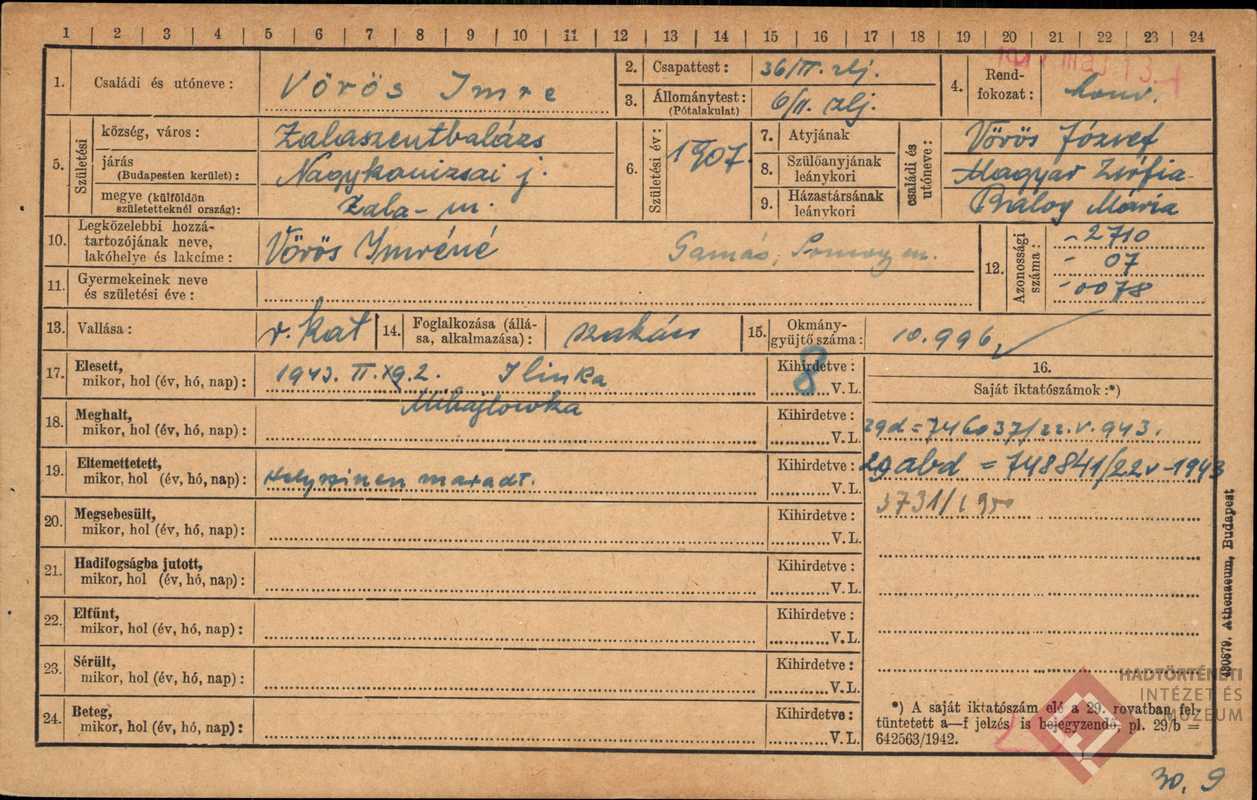 1 | 2 | 3 | 4 | 5 | 6 | 7 | 8 | 9 | 10 | 11 | 12 | 13 | 14 | 15 | 16 | 17 | 18 | 19 | 20 | 21 | 22 | 23 | 24
1. Családi és utóneve: Vörös Imre
2. Csapattest: 36/II. zlj.
3. Állománytest: (Pótalakulat) 6/II. zlj.
4. Rend-
fokozat: Honv.
5. Születési
község, város: Zalaszentbalázs
járás
(Budapesten kerület): Nagykanizsai j.
megye (külföldön
születetteknél ország): Zala-m.
6. Születési év: 1907.
7. Atyjának
8. Szülőanyjának
leánykori
9. Házastársának
leánykori
családi és
utóneve:
Vörös József
Magyar Zsófia
Balog Mária
10. Legközelebbi hozzá-
tartozójának neve,
lakóhelye és lakcíme: Vörös Imréné Gamás, Somogy m.
11. Gyermekeinek neve
és születési éve:
12. Azonossági
száma:
-2710
- 07
-0078
13. Vallása: r. kat
14. Foglalkozása (állá-
sa, alkalmazása): szakács
15. Okmány-
gyüjtő száma: 10.996
16.
Saját iktatószámok:*)
29d=746037/22.V.943.
29abd = 748841/22 V-1943
3731/1950
17. Elesett,
mikor, hol (év, hó, nap): 1943. II. 2. Ilinka
Mihajlowka
Kihirdetve: 8
V. L.
18. Meghalt,
mikor, hol (év, hó, nap):
Kihirdetve:
V. L.
19. Eltemettetett,
mikor, hol (év, hó, nap): Helyszinen maradt.
Kihirdetve:
V. L.
20. Megsebesült,
mikor, hol (év, hó, nap):
Kihirdetve:
V. L.
21. Hadifogságba jutott,
mikor, hol (év, hó, nap):
Kihirdetve:
V. L.
22. Eltünt,
mikor, hol (év, hó, nap):
Kihirdetve:
V. L.
23. Sérült,
mikor, hol (év, hó, nap):
Kihirdetve:
V. L.
24. Beteg,
mikor, hol (év, hó, nap):
Kihirdetve:
V. L.
*) A saját iktatószám elé a 29. rovatban fel-
tüntetett a—f jelzés is bejegyzendő, pl. 29/b =
642563/1942.
Athenaeum, Budapest
HADTÖRTÉNETI
INTÉZET ÉS
MÚZEUM
30. 9